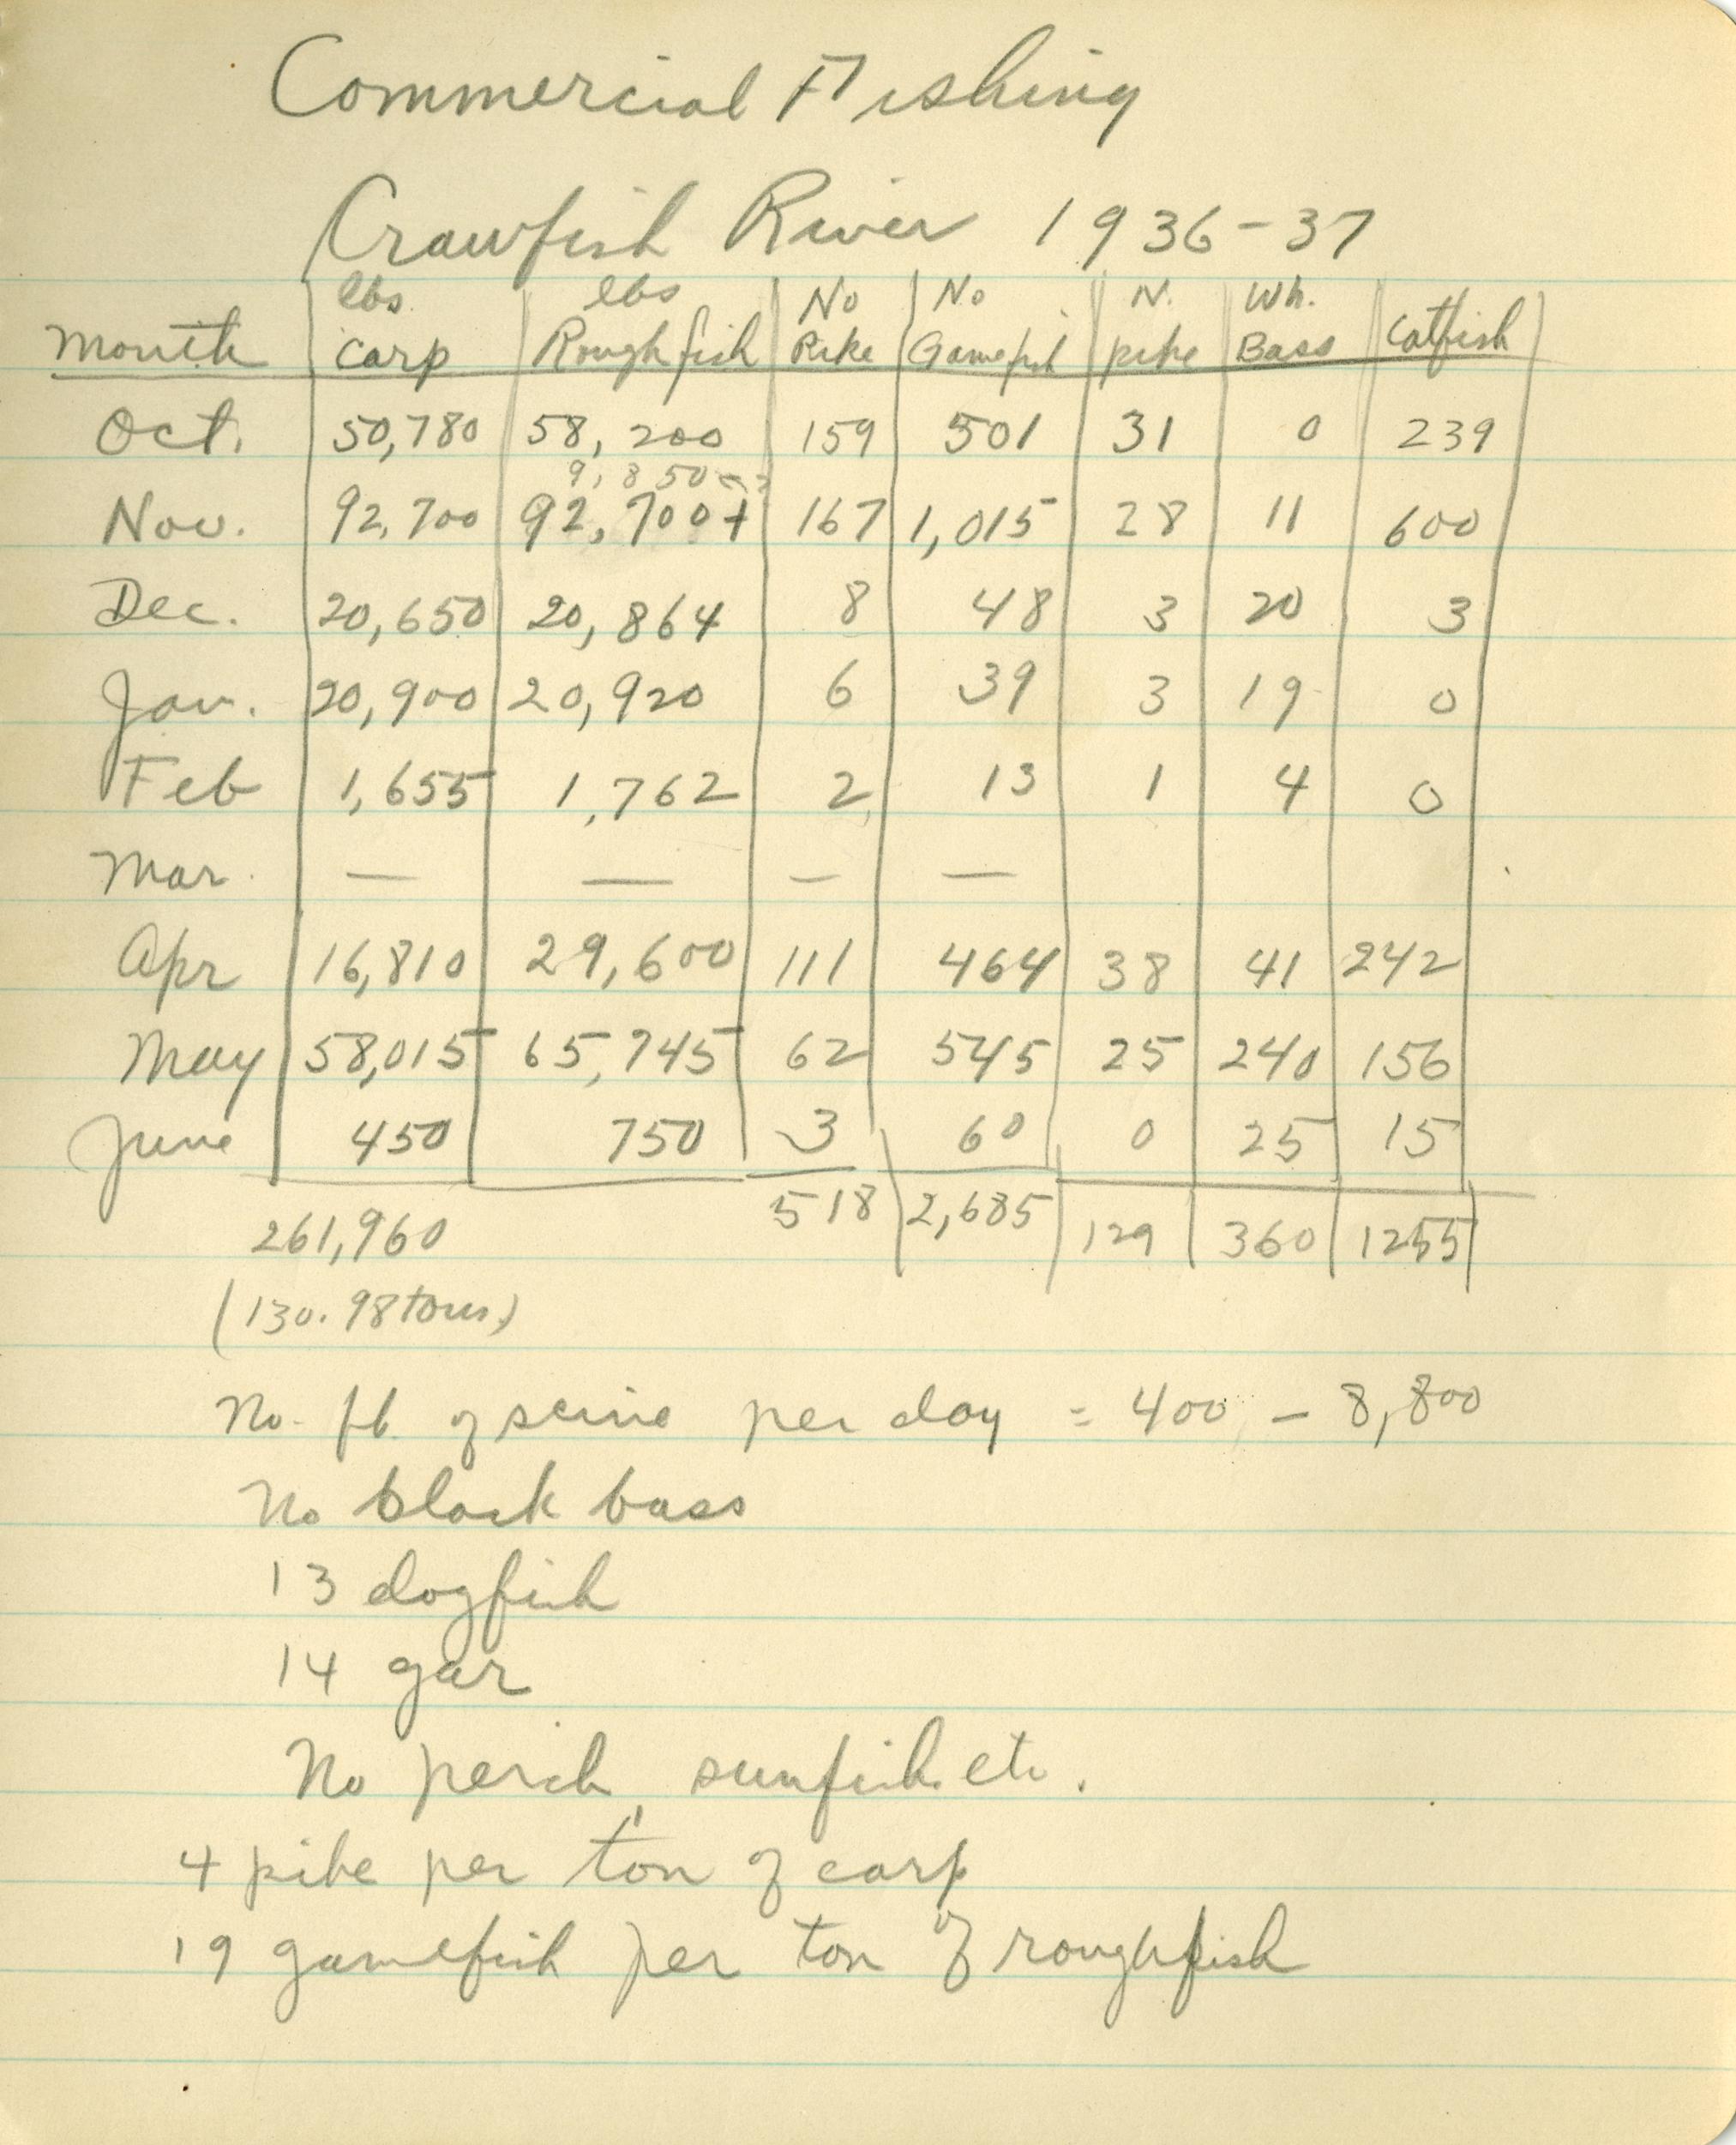 Commercial Fishing
Crawfish River 1936-37
lbs. lbs No No N. Wh.
Month Carp Roughfish Pike Gamefish pike Bass Catfish
Oct. 50,780 58,200 159 501 31 0 239
9,850
Nov. 92,700 92,700+ 167 1,015 28 11 600
Dec. 20,650 20,864 8 48 3 20 3
Jan. 20,900 20,920 6 39 3 19 0
Feb 1,655 1,762 2 13 1 4 0
Mar. — — — —
Apr 16,810 29,600 111 464 38 41 242
May 58,015 65,745 62 545 25 240 156
June 450 750 3 60 0 25 15
261,960 518 2,685 129 360 1255
(130.98 tons)
No. ft. of seine per day = 400 - 8,800
No black bass
13 dogfish
14 gar
No perch, sunfish etc.
4 pike per ton of carp
19 gamefish per ton of roughfish